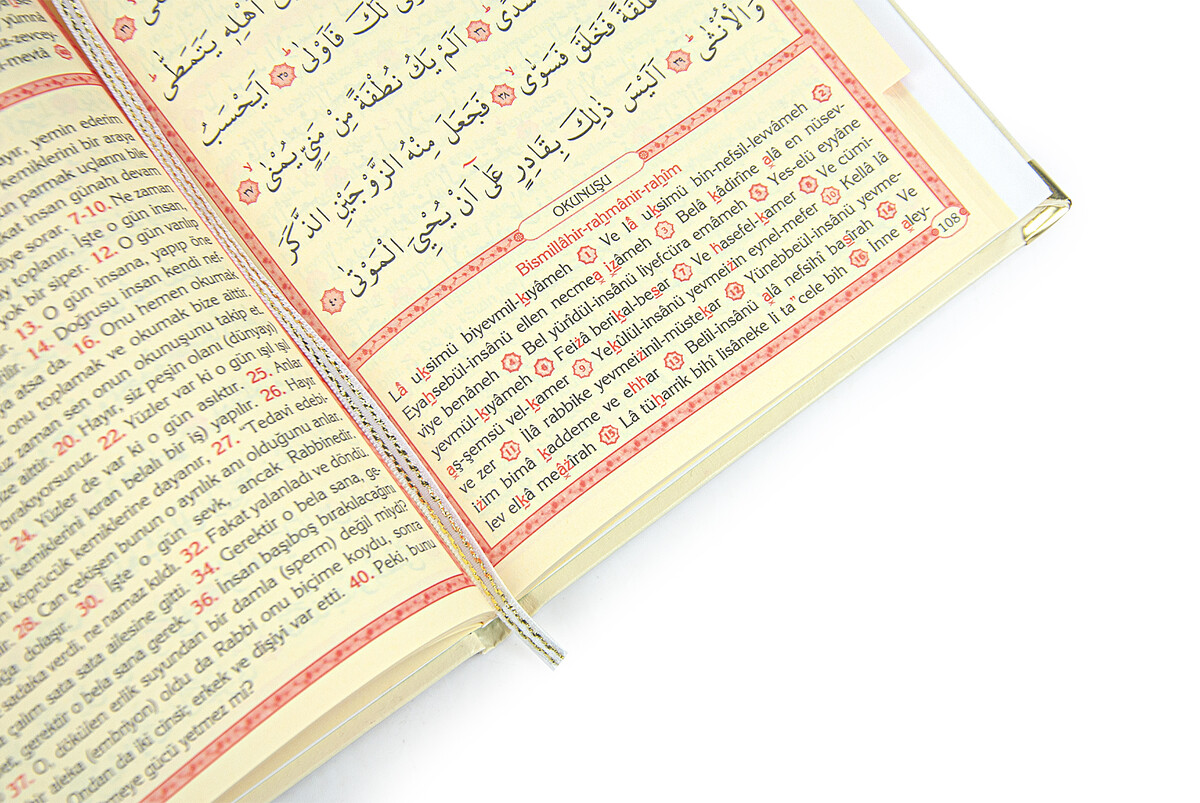 yümna
z-zevcey-
-mevtâ
ayır, yemin ederim
kemiklerini bir araya
un parmak uçlarını bile
akat insan günahı devam
diye sorar. 7-10. Ne zaman
toplanır, İşte o gün insan,
yok bir siper. 12. O gün varılıp
13. O gün insana, yapıp öne
14. Doğrusu insan kendi nef-
ya atsa da. 16. Onu hemen okumak
onu toplamak ve okumak bize aittir.
zaman sen onun okunuşunu takip et.
aittir. 20. Hayır, siz peşin olanı (dünyayı)
bırakıyorsunuz. 22. Yüzler var ki o gün ışıl ışıl
24. Yüzler de var ki o gün asıktır. 25. Anlar
kemiklerini kıran belalı bir iş) yapılır. 26. Hayır
köprücük kemiklerine dayanır, 27. "Tedavi edebi-
28. Can çekişen bunun o ayrılık anı olduğunu anlar.
dolaşır. 30. İşte o gün sevk, ancak Rabbinedir.
sadaka verdi, ne namaz kıldı. 32. Fakat yalanladı ve döndü.
çalım sata sata ailesine gitti. 34. Gerektir o bela sana, ge-
gerektir o bela sana gerek. 36. İnsan başıboş bırakılacağını
37. O, dökülen erlik suyundan bir damla (sperm) değil miydi?
bir aleka (embriyon) oldu da Rabbi onu biçime koydu, sonra
Ondan da iki cinsi; erkek ve dişiyi var etti. 40. Peki, bunu
meye gücü yetmez mi?
اَهْلِهِ يَتَمَطّٰىۜ ﴿٣٣﴾
لَكَ فَاَوْلٰىۜ ﴿٣٥﴾ اَيَحْسَبُ
سُدًىۜ ﴿٣٦﴾ اَلَمْ يَكُ نُطْفَةً مِنْ مَنِيٍّ يُمْنٰىۙ ﴿٣٧﴾
عَلَقَةً فَخَلَقَ فَسَوّٰىۙ ﴿٣٨﴾ فَجَعَلَ مِنْهُ الزَّوْجَيْنِ الذَّكَرَ
وَالْاُنْثٰىۜ ﴿٣٩﴾ اَلَيْسَ ذٰلِكَ بِقَادِرٍ عَلٰٓى اَنْ يُحْيِيَ الْمَوْتٰى ﴿٤٠﴾
OKUNUŞU
Bismillâhir-rahmânir-rahîm
Lâ uksimü biyevmil-kıyâmeh 1 Ve lâ uksimü bin-nefsil-levvâmeh 2
Eyahsebül-insânü ellen necmea izâmeh 3 Belâ kâdirîne alâ en nüsev-
viye benâneh 4 Bel yürîdül-insânü liyefcüra emâmeh 5 Yes-elü eyyâne
yevmül-kıyâmeh 6 Feizâ berikal-besar 7 Ve hasefel-kamer 8 Ve cümi-
aş-şemsü vel-kamer 9 Yekülül-insânü yevmeizin eynel-mefer 10 Kellâ lâ
ve zer 11 İlâ rabbike yevmeizinil-müstekar 12 Yünebbeül-insânü yevme-
izim bimâ kaddeme ve ehhar 13 Belil-insânü alâ nefsihî basîrah 14 Ve
lev elkâ meâzîrah 15 Lâ tüharrik bihî lisâneke li ta"cele bih 16 İnne aley-
108